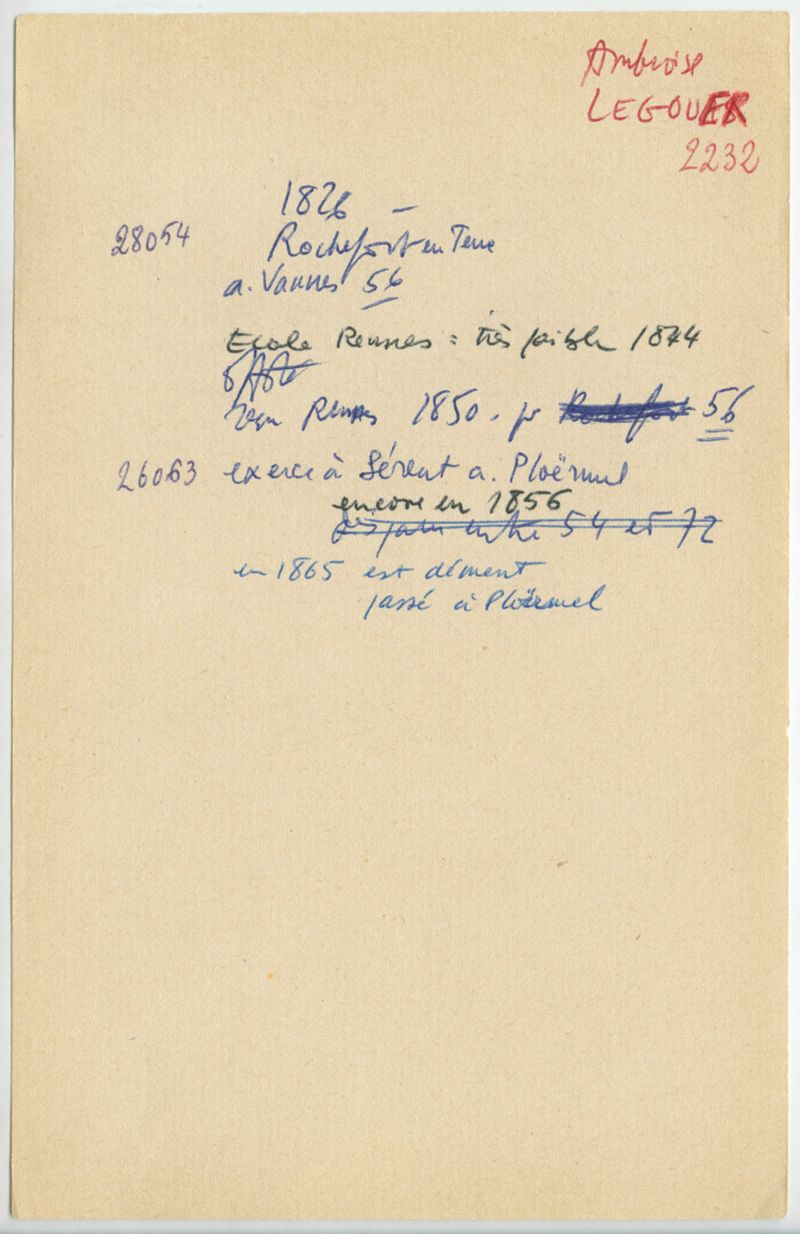 Ambroise
LEGOUER
2232
1826 –
28054 Rochefort en Terre
a. Vannes 56
Ecole Rennes : très faible 1844
reçu Rennes 1850 - pr Rochefort 56
26063 exerce à Sérent a. Ploërmel
encore en 1856
entre 54 et 72
en 1865 est dément
passé à Ploërmel